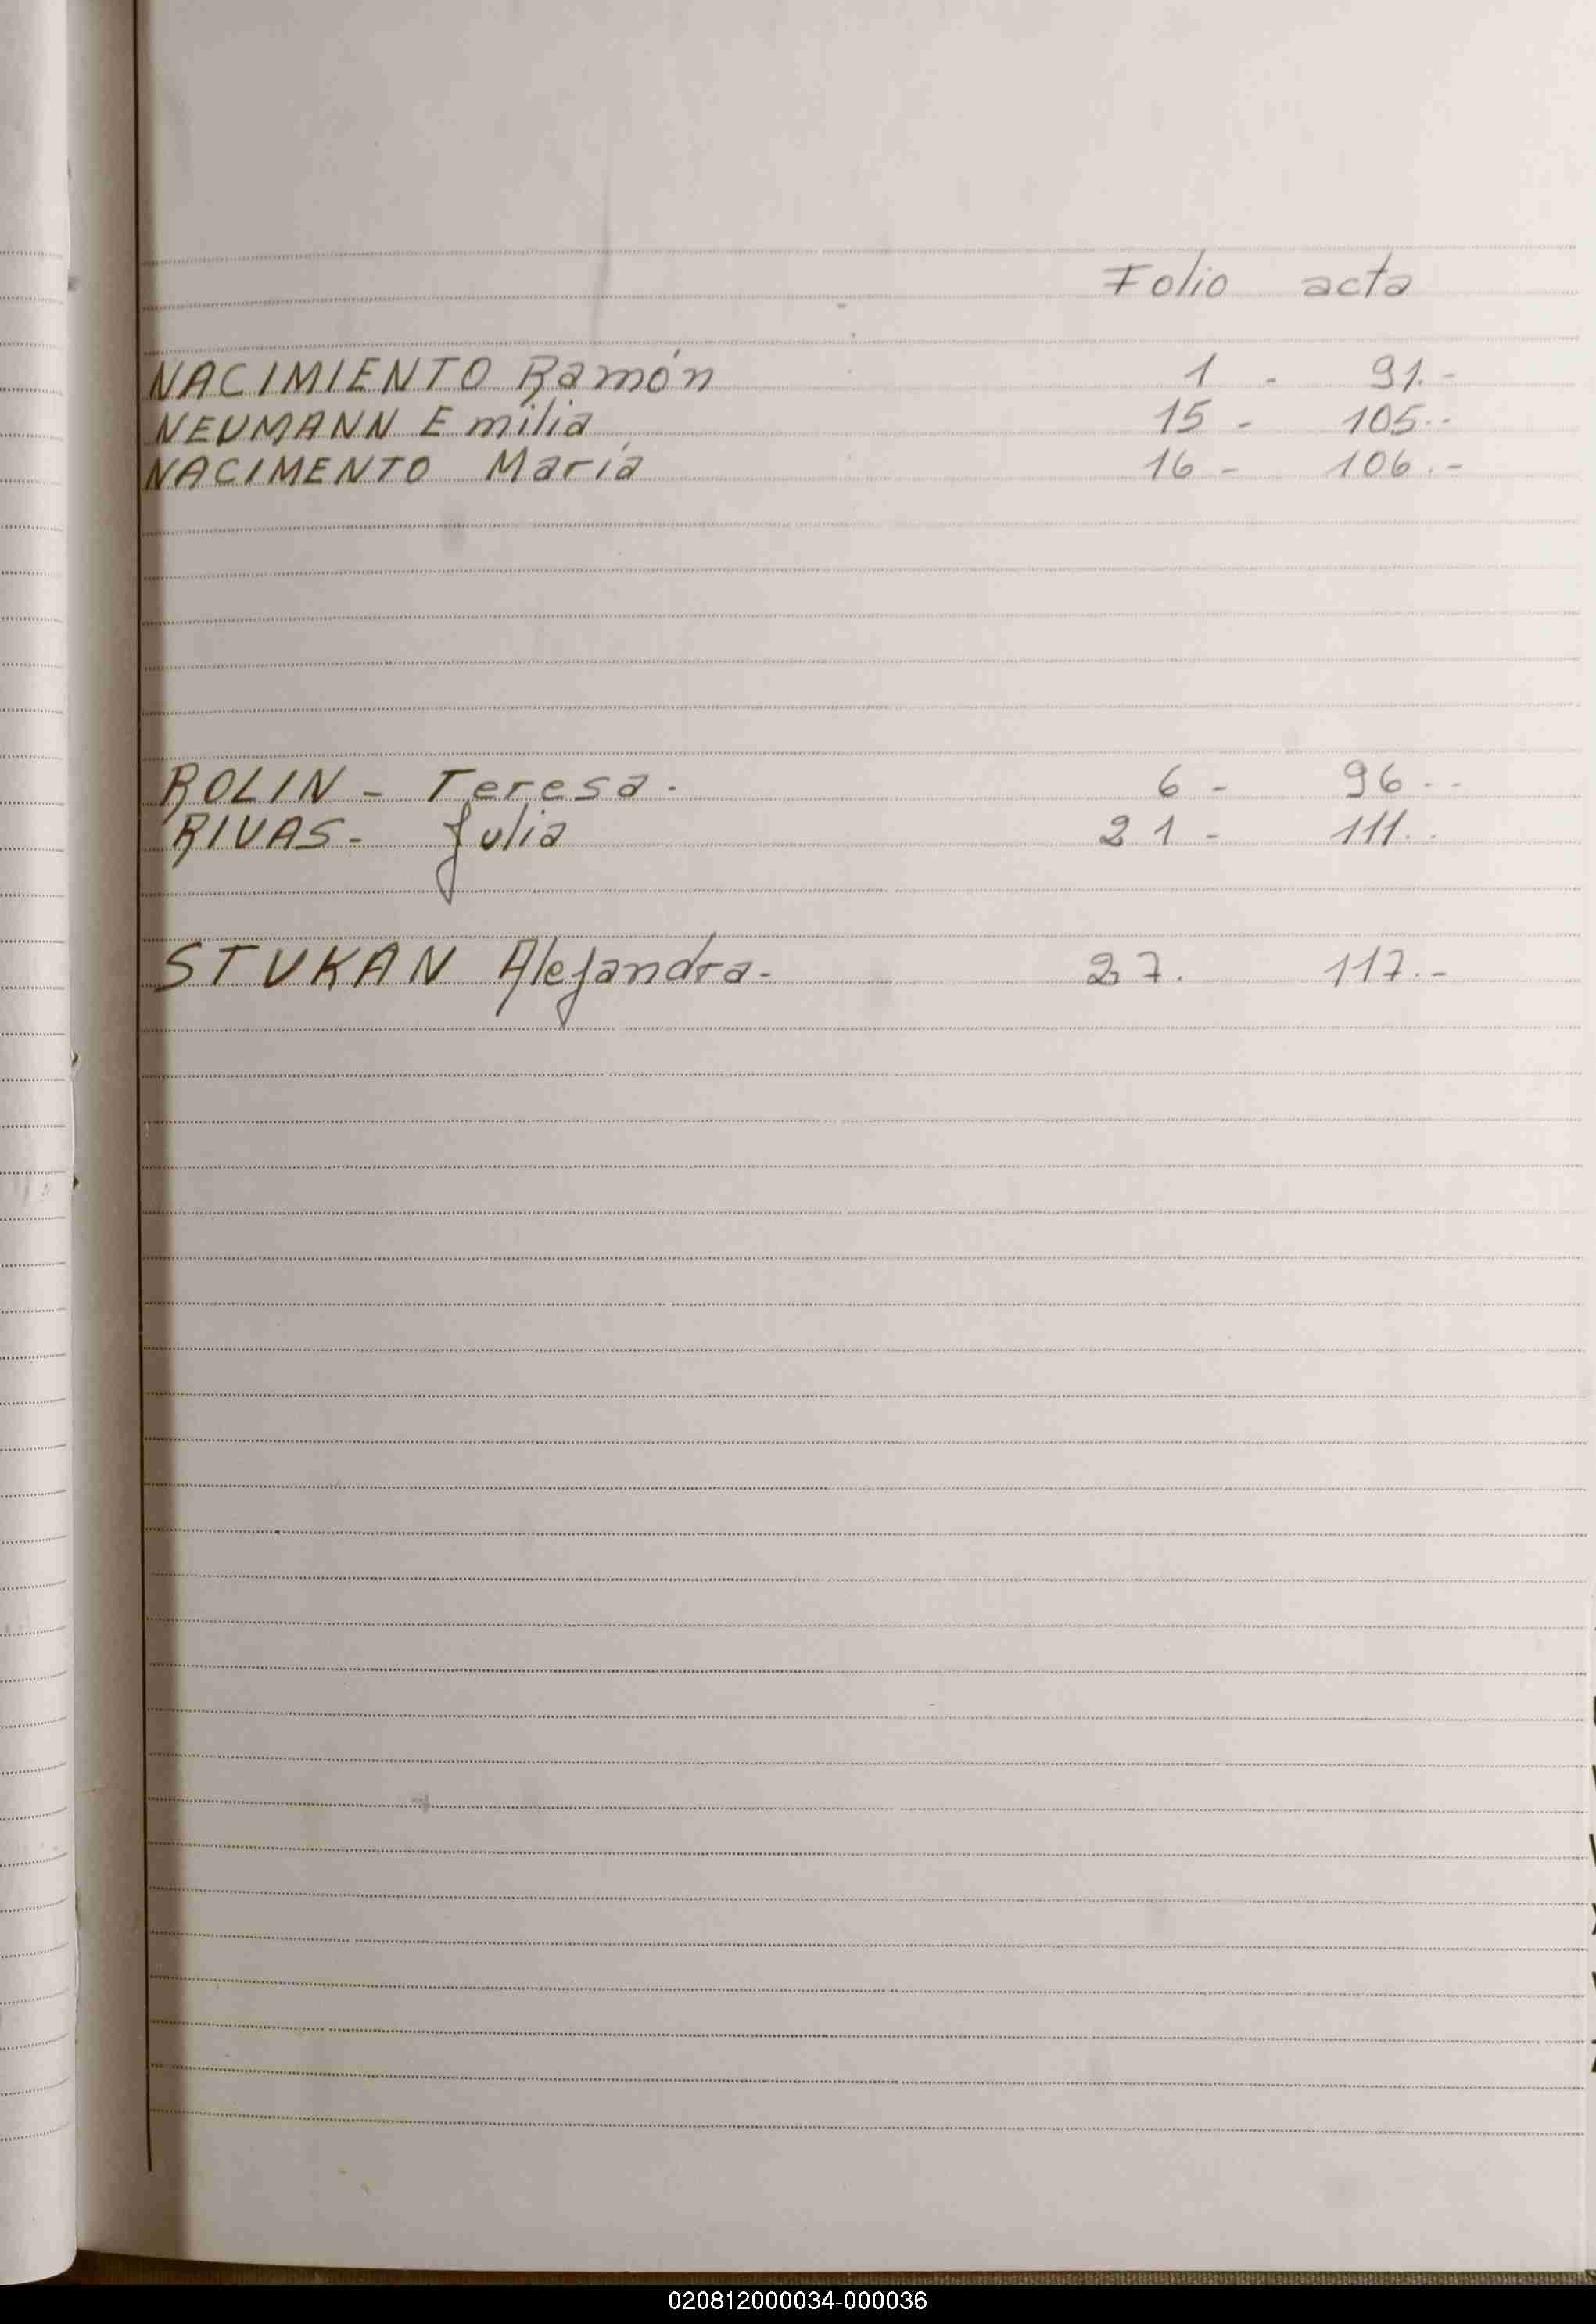 Folio acta
NACIMIENTO Ramón 1 - 91.-
NEUMANN Emilia 15 - 105.-
NACIMENTO María 16 - 106.-
ROLIN - Teresa. 6 - 96..
RIVAS - Julia 21 - 111..
STUKAN Alejandra- 27. 117.-
020812000034-000036